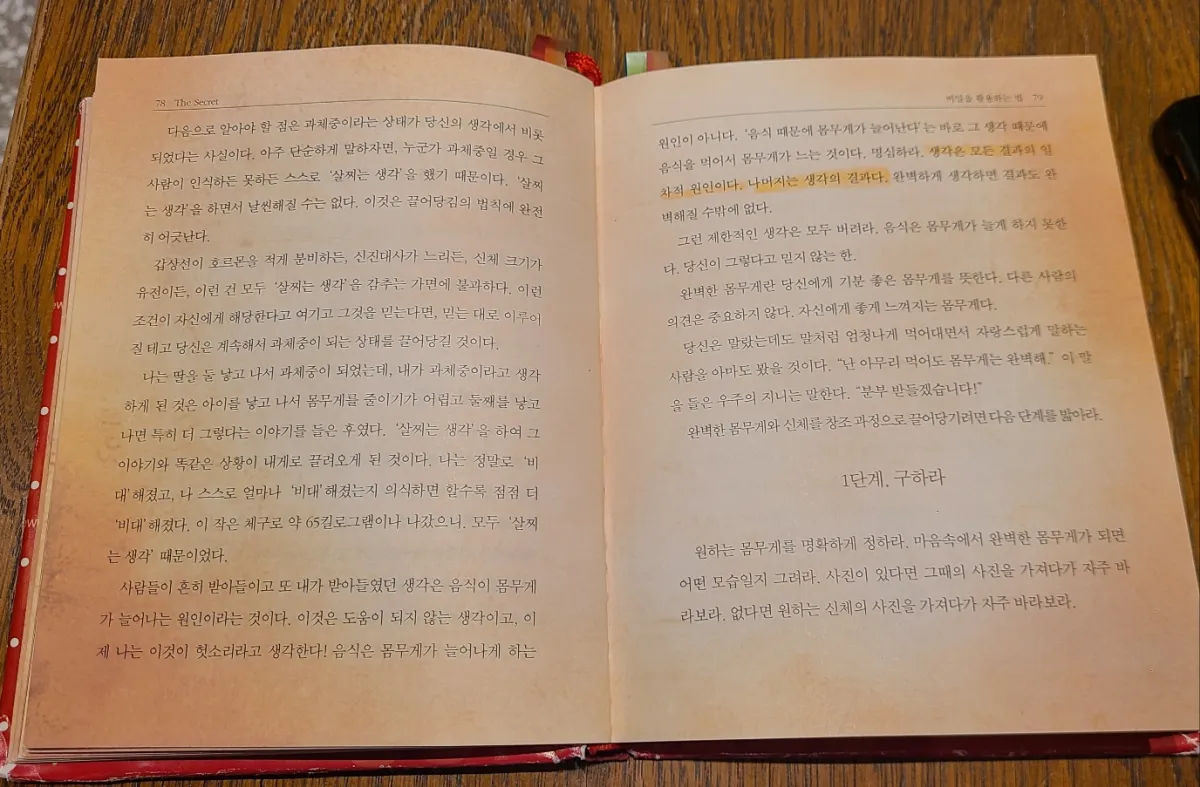 78 The Secret
다음으로 알아야 할 점은 과체중이라는 상태가 당신의 생각에서 비롯
되었다는 사실이다. 아주 단순하게 말하자면, 누군가 과체중일 경우 그
사람이 인식하든 못하든 스스로 ‘살찌는 생각’을 했기 때문이다. ‘살찌
는 생각’을 하면서 날씬해질 수는 없다. 이것은 끌어당김의 법칙에 완전
히 어긋난다.
갑상선이 호르몬을 적게 분비하든, 신진대사가 느리든, 신체 크기가
유전이든, 이런 건 모두 ‘살찌는 생각’을 감추는 가면에 불과하다. 이런
조건이 자신에게 해당한다고 여기고 그것을 믿는다면, 믿는 대로 이루어
질 테고 당신은 계속해서 과체중이 되는 상태를 끌어당길 것이다.
나는 딸을 둘 낳고 나서 과체중이 되었는데, 내가 과체중이라고 생각
하게 된 것은 아이를 낳고 나서 몸무게를 줄이기가 어렵고 둘째를 낳고
나면 특히 더 그렇다는 이야기를 들은 후였다. ‘살찌는 생각’을 하여 그
이야기와 똑같은 상황이 내게로 끌려오게 된 것이다. 나는 정말로 ‘비
대’해졌고, 나 스스로 얼마나 ‘비대’해졌는지 의식하면 할수록 점점 더
‘비대’해졌다. 이 작은 체구로 약 65킬로그램이나 나갔으니. 모두 ‘살찌
는 생각’ 때문이었다.
사람들이 흔히 받아들이고 또 내가 받아들였던 생각은 음식이 몸무게
가 늘어나는 원인이라는 것이다. 이것은 도움이 되지 않는 생각이고, 이
제 나는 이것이 헛소리라고 생각한다! 음식은 몸무게가 늘어나게 하는
비밀을 활용하는 법 79
원인이 아니다. ‘음식 때문에 몸무게가 늘어난다’는 바로 그 생각 때문에
음식을 먹어서 몸무게가 느는 것이다. 명심하라. 생각은 모든 결과의 일
차적 원인이다. 나머지는 생각의 결과다. 완벽하게 생각하면 결과도 완
벽해질 수밖에 없다.
그런 제한적인 생각은 모두 버려라. 음식은 몸무게가 늘게 하지 못한
다. 당신이 그렇다고 믿지 않는 한.
완벽한 몸무게란 당신에게 기분 좋은 몸무게를 뜻한다. 다른 사람의
의견은 중요하지 않다. 자신에게 좋게 느껴지는 몸무게다.
당신은 말랐는데도 말처럼 엄청나게 먹어대면서 자랑스럽게 말하는
사람을 아마도 봤을 것이다. “난 아무리 먹어도 몸무게는 완벽해.” 이 말
을 들은 우주의 지니는 말한다. “분부 받들겠습니다!”
완벽한 몸무게와 신체를 창조 과정으로 끌어당기려면 다음 단계를 밟아라.
1단계. 구하라
원하는 몸무게를 명확하게 정하라. 마음속에서 완벽한 몸무게가 되면
어떤 모습일지 그려라. 사진이 있다면 그때의 사진을 가져다가 자주 바
라보라. 없다면 원하는 신체의 사진을 가져다가 자주 바라보라.